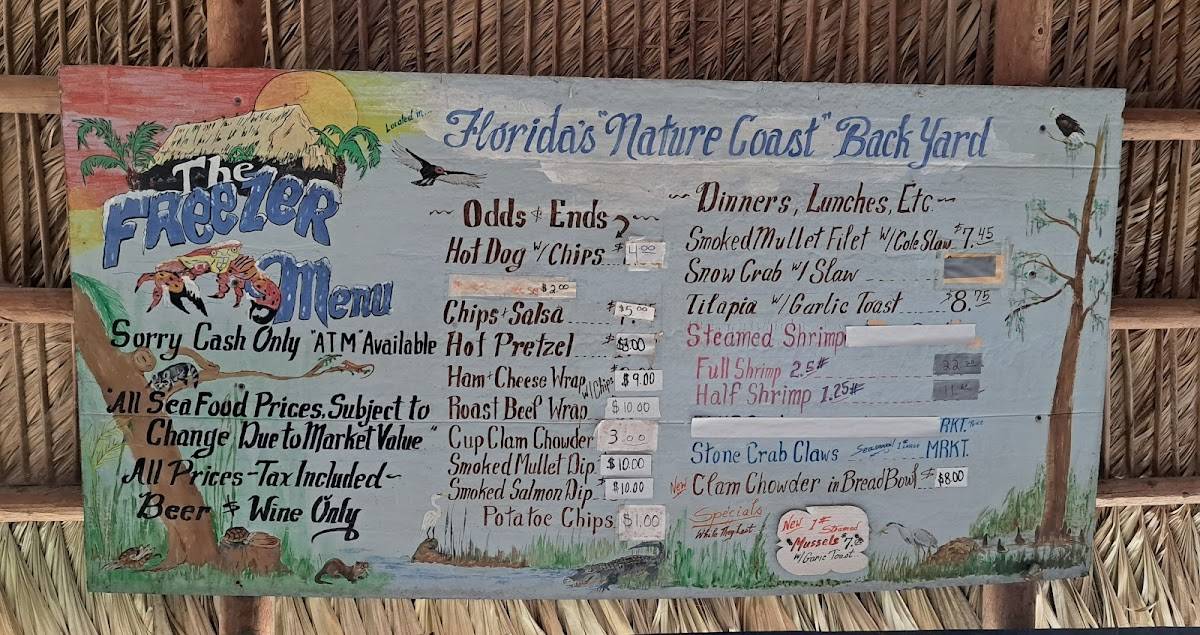 Located in...
Florida's "Nature Coast" Back Yard
The
FREEZER
Menu
Sorry Cash Only "ATM" Available
"All Sea Food Prices, Subject to
Change Due to Market Value"
All Prices - Tax Included ~
Beer & Wine Only
~ Odds & Ends ~
Hot Dog w/ Chips $4.00
$2.00
Chips & Salsa $5.00
Hot Pretzel $3.00
Ham & Cheese Wrap w/ Chips $9.00
Roast Beef Wrap $10.00
Cup Clam Chowder 3.00
Smoked Mullet Dip $10.00
Smoked Salmon Dip $10.00
Potatoe Chips $1.00
~ Dinners, Lunches, Etc. ~
Smoked Mullet Filet w/ Cole Slaw $7.45
Snow Crab w/ Slaw
Tilapia w/ Garlic Toast $8.75
Steamed Shrimp
Full Shrimp 2.5#
Half Shrimp 1.25#
RKT.
Stone Crab Claws MRKT.
New Clam Chowder in Bread Bowl $8.00
Specials
While They Last
New 1# Steamed
Mussels $7.
w/ Garlic Toast